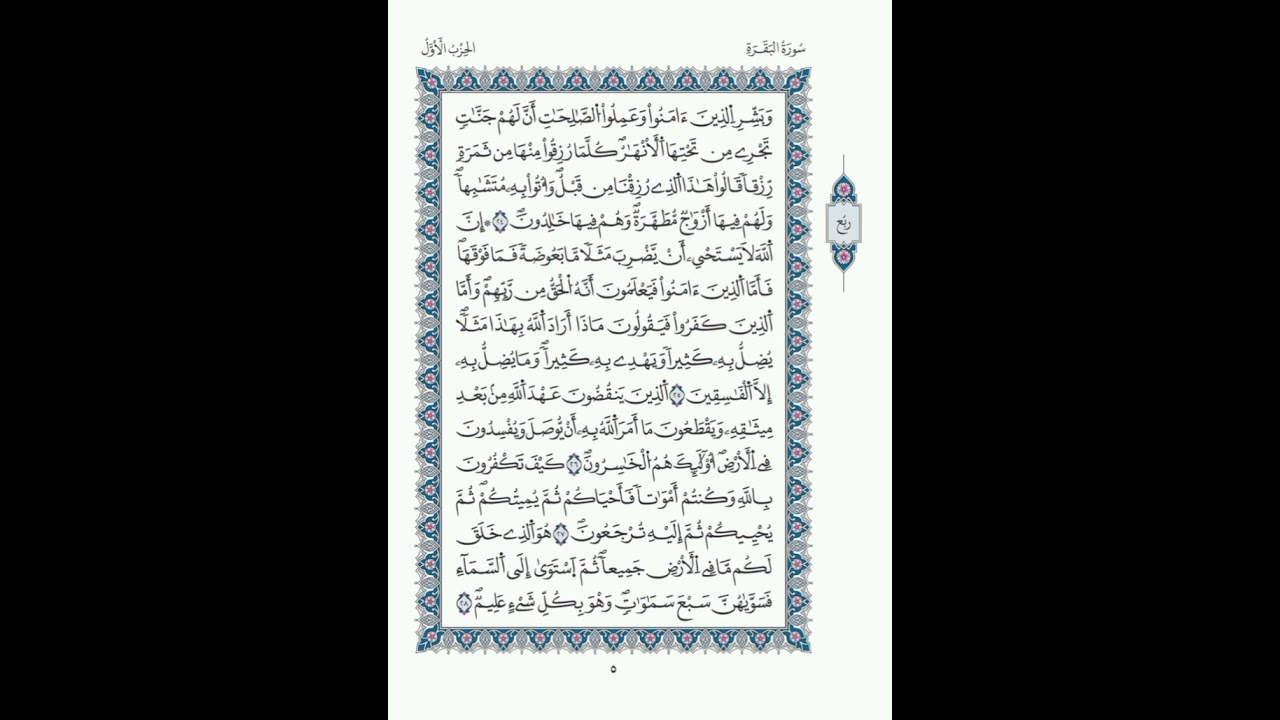 سُورَةُ الْبَقَرَةِ
الحِزْبُ الْأَوَّلُ
وَبَشِّرِ اِ۬لذِينَ ءَامَنُواْ وَعَمِلُواْ اُ۬لصَّٰلِحَٰتِ أَنَّ لَهُمْ جَنَّٰتٖ
تَجْرِے مِن تَحْتِهَا اَ۬لَانْهَٰرُۖ كُلَّمَا رُزِقُواْ مِنْهَا مِن ثَمَرَةٖ
رِّزْقاٗ قَالُواْ هَٰذَا اَ۬لذِے رُزِقْنَا مِن قَبْلُۖ وَأُتُواْ بِهِۦ مُتَشَٰبِهاٗۖ
وَلَهُمْ فِيهَا أَزْوَٰجٞ مُّطَهَّرَةٞۖ وَهُمْ فِيهَا خَٰلِدُونَۖ ٢٤ ۞إِنَّ
اَ۬للَّهَ لَا يَسْتَحْيِۦ أَنْ يَّضْرِبَ مَثَلاٗ مَّا بَعُوضَةٗ فَمَا فَوْقَهَاۖ
فَأَمَّا اَ۬لذِينَ ءَامَنُواْ فَيَعْلَمُونَ أَنَّهُ اُ۬لْحَقُّ مِن رَّبِّهِمْۖ وَأَمَّا
اَ۬لذِينَ كَفَرُواْ فَيَقُولُونَ مَاذَا أَرَادَ اَ۬للَّهُ بِهَٰذَا مَثَلاٗۖ
يُضِلُّ بِهِۦ كَثِيراٗ وَيَهْدِے بِهِۦ كَثِيراٗۖ وَمَا يُضِلُّ بِهِۦ
إِلَّا اَ۬لْفَٰسِقِينَ ٢٥ اَ۬لذِينَ يَنقُضُونَ عَهْدَ اَ۬للَّهِ مِنۢ بَعْدِ
مِيثَٰقِهِۦ وَيَقْطَعُونَ مَا أَمَرَ اَ۬للَّهُ بِهِۦ أَنْ يُّوصَلَ وَيُفْسِدُونَ
فِے اِ۬لَارْضِۖ أُوْلَٰٓئِكَ هُمُ اُ۬لْخَٰسِرُونَۖ ٢٦ كَيْفَ تَكْفُرُونَ
بِاللَّهِ وَكُنتُمْ أَمْوَٰتاٗ فَأَحْيَاكُمْ ثُمَّ يُمِيتُكُمْۖ ثُمَّ
يُحْيِيكُمْ ثُمَّ إِلَيْهِ تُرْجَعُونَۖ ٢٧ هُوَ اَ۬لذِے خَلَقَ
لَكُم مَّا فِے اِ۬لَارْضِ جَمِيعاٗۖ ثُمَّ اَ۪سْتَوَىٰ إِلَى اَ۬لسَّمَآءِ
فَسَوَّىٰهُنَّ سَبْعَ سَمَٰوَٰتٖۖ وَهْوَ بِكُلِّ شَےْءٍ عَلِيمٞۖ ٢٨
ربع
٥